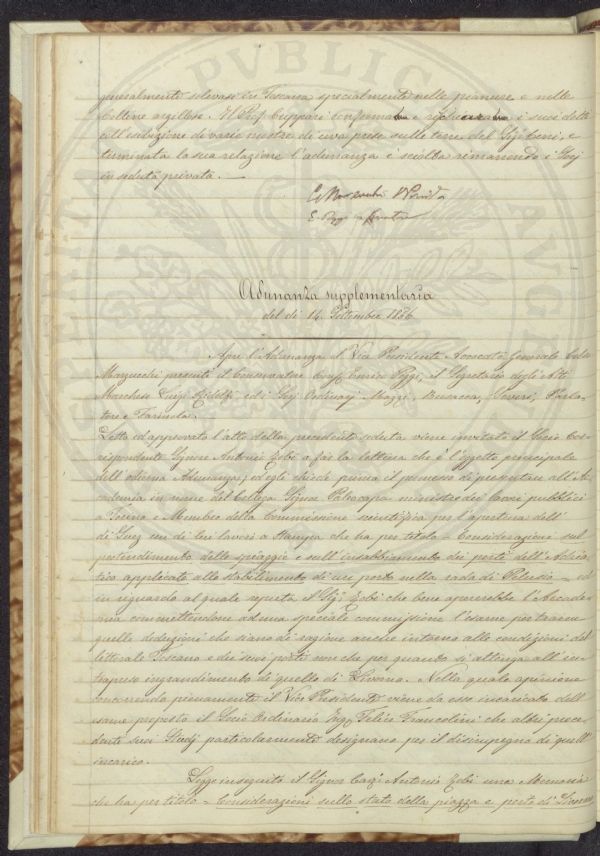 generalmente solevasi in Toscana specialmente nelle pianure e nelle
colline argillose. Il Prof. Cuppari conferma
coll'esibizione di varie mostre di uva prese sulle terre del Sig. e
terminata la sua relazione l'adunanza è sciolta rimanendo i Socj
in seduta privata. —
Adunanza supplementaria
del dì 14 Settembre 1856
Apre l'Adunanza il Vice Presidente Avvocato Generale Celso
Marzucchi presenti il Conservatore Cav. Enrico Poggi, il Segretario degli Atti
Marchese Luigi Ridolfi ed i Socj Ordinarj Mazzi, Parla-
tore e Taruola.
Letto ed approvato l'atto della precedente seduta viene invitato il Socio Cor-
rispondente Signore Antonio Zobi a far la lettura che è l'oggetto principale
dell'odierna Adunanza; ed egli chiede prima il permesso di presentare all'Ac-
cademia in nome del collega Signor Paleocapa ministro dei lavori pubblici
a Torino e Membro della Commissione scientifica per l'apertura dell'
di Suez un di lui lavoro a stampa che ha per titolo = Considerazioni sul
protendimento delle spiaggie e sull'insabbiamento dei porti dell'Adria-
tico applicate allo stabilimento di un porto nella rada di Pelusio = ed
in riguardo al quale reputa il Sig. Zobi che bene opererebbe l'Accade-
mia commettendone ad una speciale commissione l'esame per trarne
quelle deduzioni che siano di ragione anche intorno alle condizioni del
litterale Toscano e dei suoi porti non che per quando si attenga all'in-
trapreso ingrandimento di quello di Livorno. = Nella quale opinione
concorrendo pienamente il Vice Presidente viene da esso incaricato dell'
esame proposto il Socio Ordinario Ing. Felice Francolini che altri prece-
denti suoi Studj particolarmente designano per il disimpegno di quell'
incarico.
Legge in seguito il Signor Cav. Antonio Zobi una Memoria
che ha per titolo = Considerazioni sullo stato della piazza e porto di Livorno